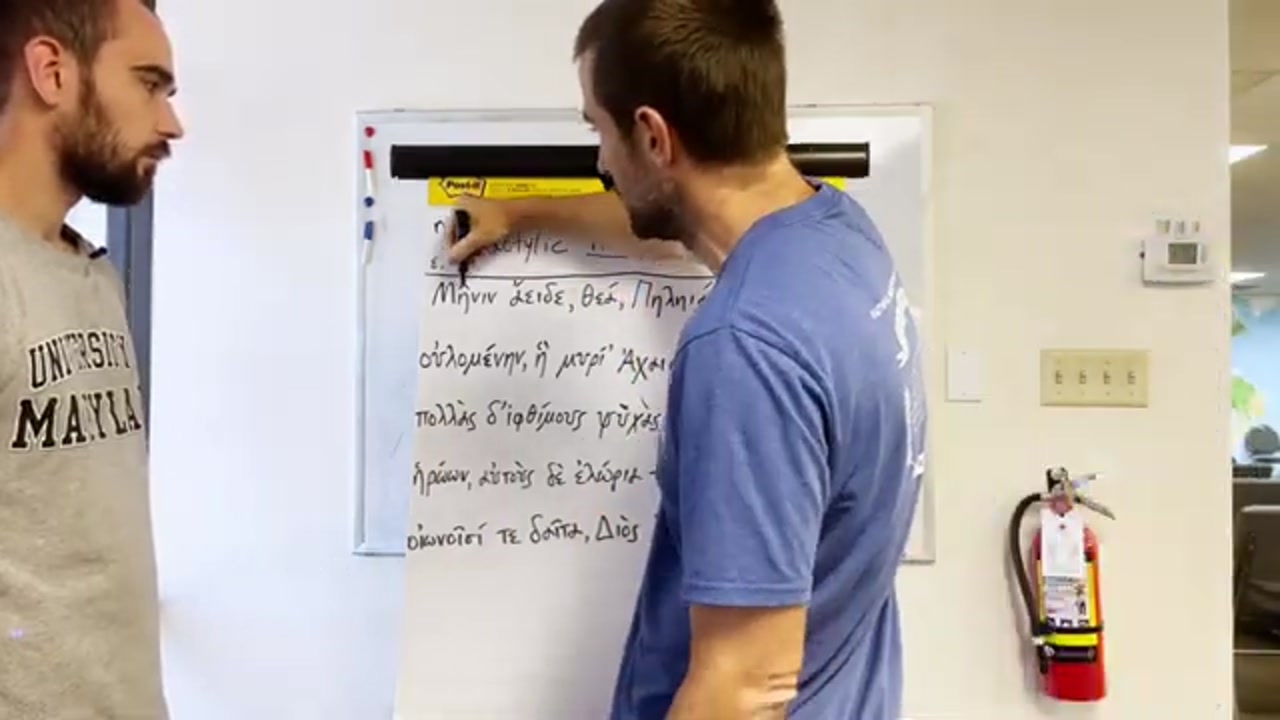 UNIVERSITY
MARYLA
Post-it
η
ε.
actylic
Μῆνιν ἄειδε, θεά, Πηληϊά
οὐλομένην, ἣ μυρί' Ἀχαι
πολλὰς δ'ἰφθίμους ψῦχὰς
ἡρώων, αὐτοὺς δὲ ἑλώρια τ
οἰωνοῖσί τε δαῖτα, Διὸς